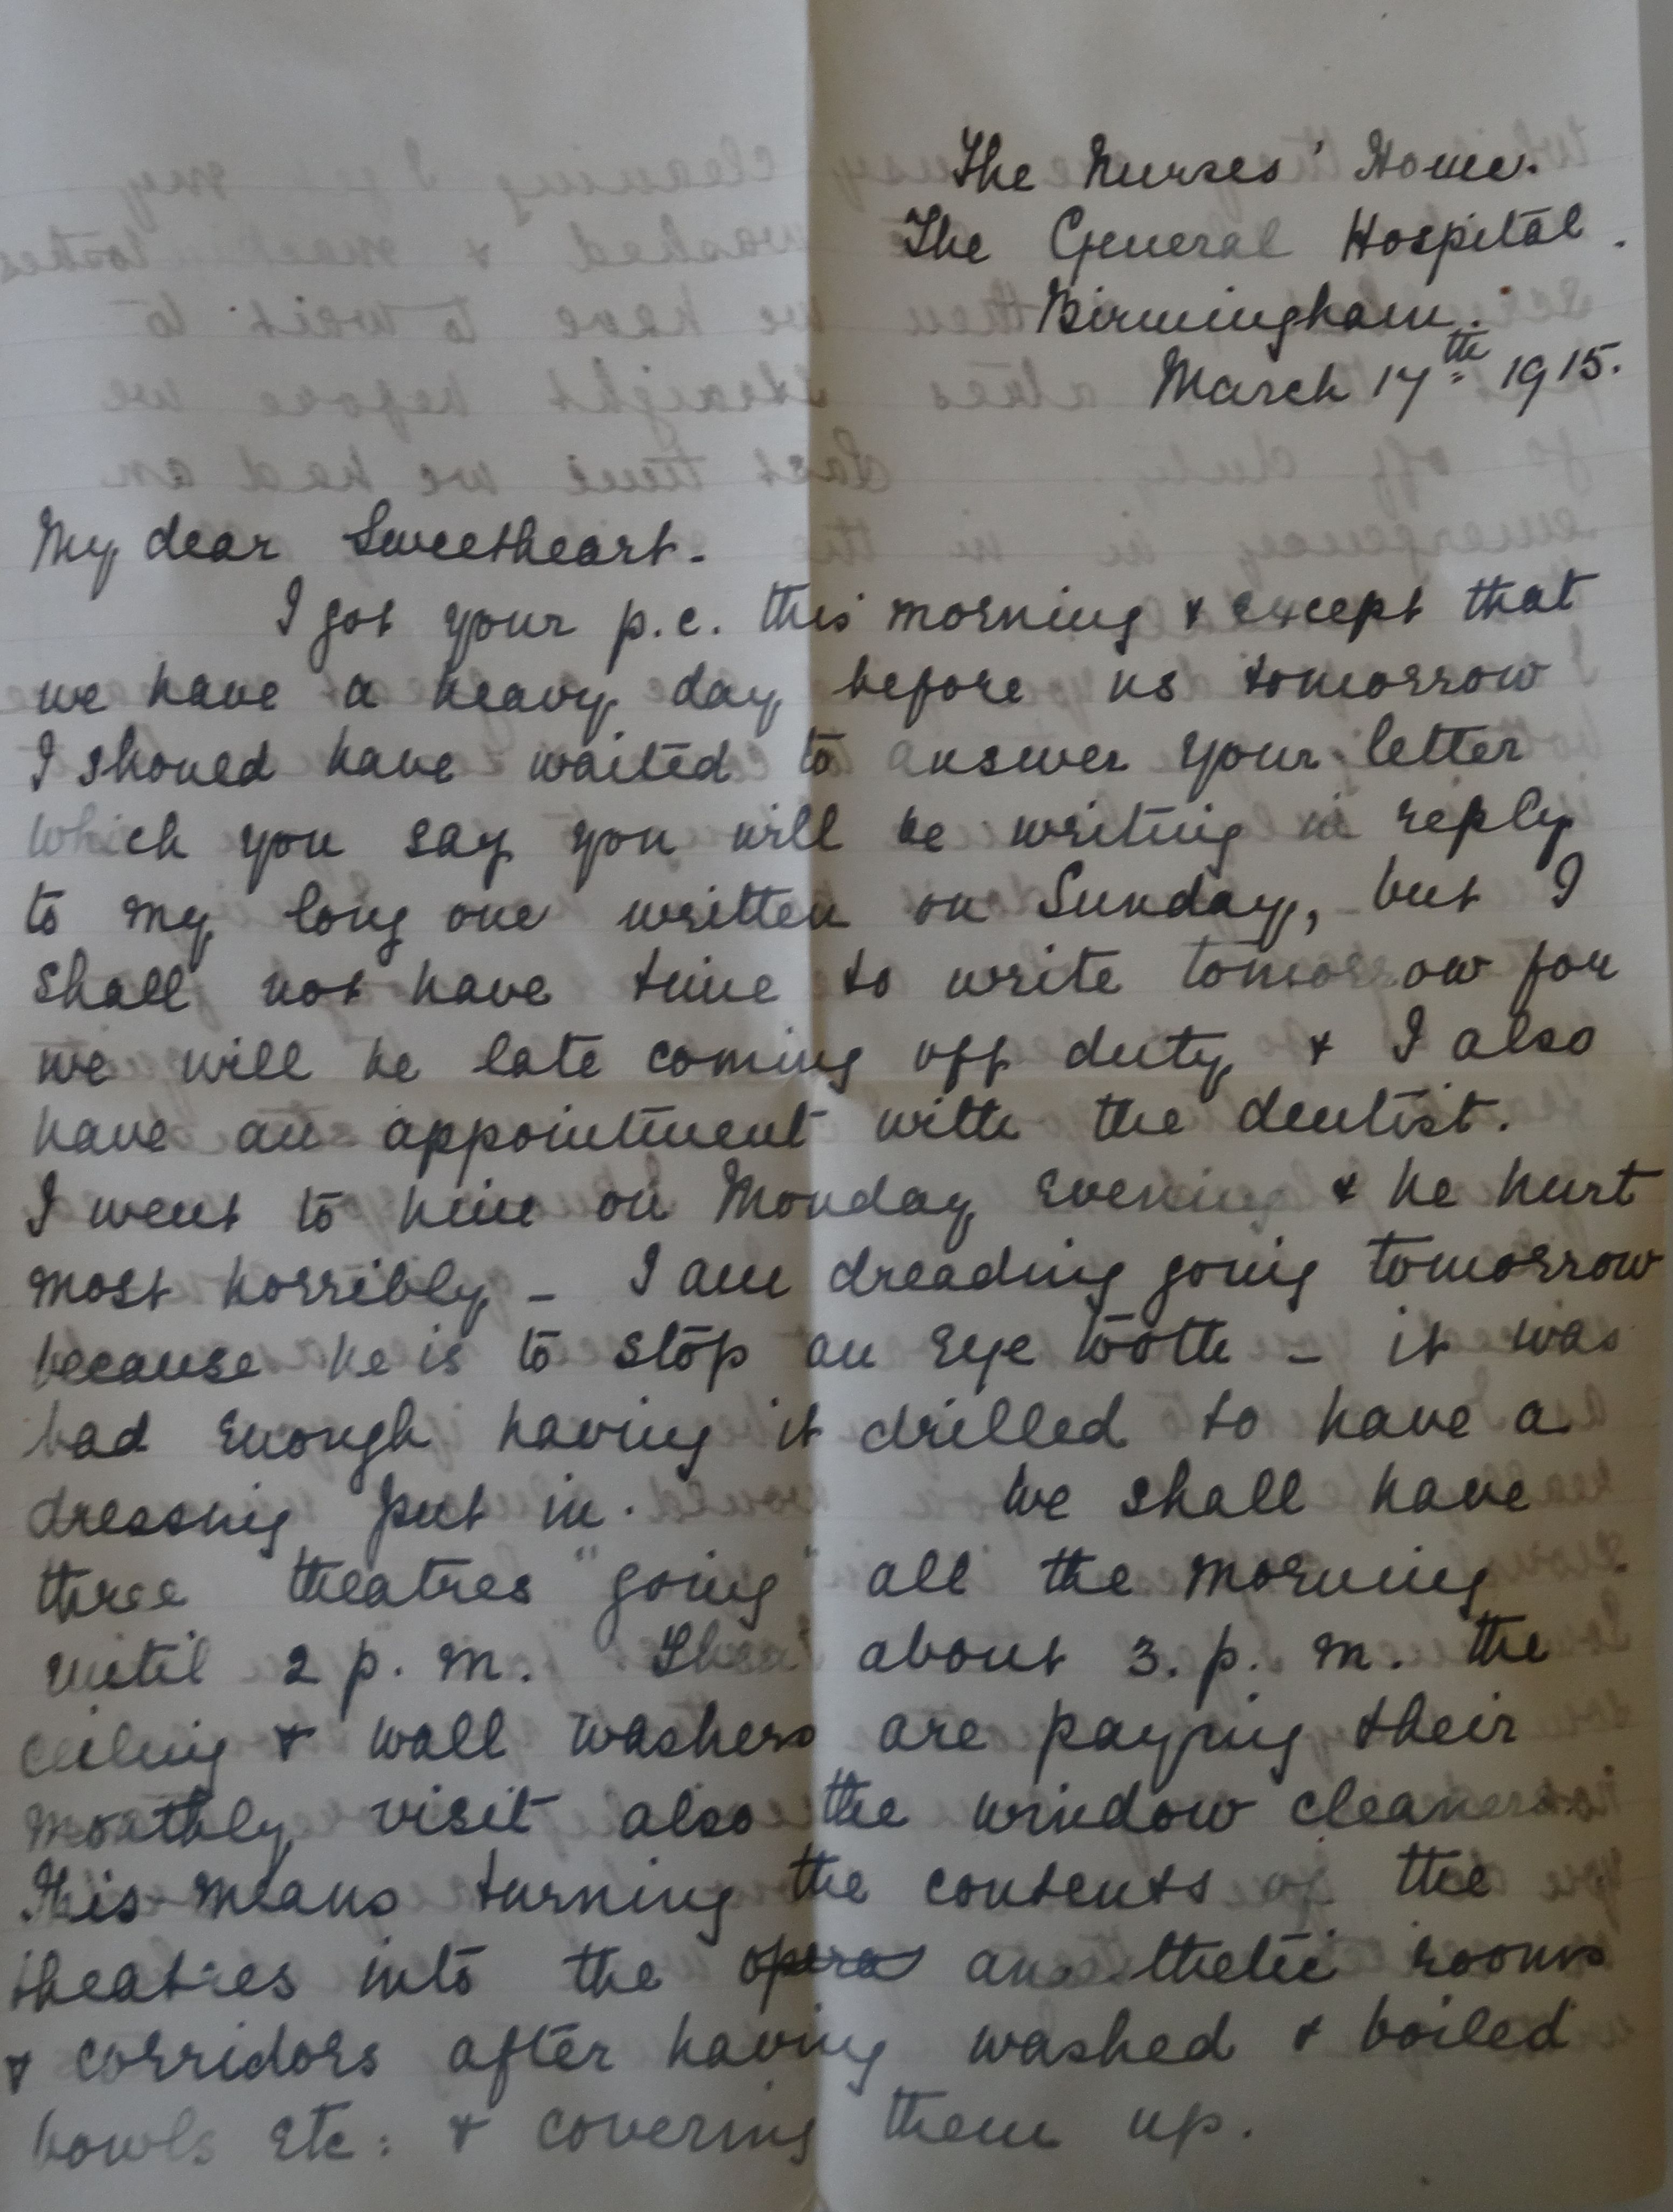 The Nurses' Home.
The General Hospital.
Birmingham.
March 17th 1915.
My dear Sweetheart.
I got your p.c. this morning & except that
we have a heavy day before us tomorrow
I should have waited to answer your letter
which you say you will be writing in reply
to my long one written on Sunday, but I
shall not have time to write tomorrow for
we will be late coming off duty & I also
have an appointment with the dentist.
I went to him on Monday evening & he hurt
most horribly - I am dreading going tomorrow
because he is to stop an eye tooth - it was
bad enough having it drilled to have a
dressing put in. We shall have
three theatres "going" all the morning
until 2 p.m. Then about 3.p.m. the
ceiling & wall washers are paying their
monthly visit also the window cleaners.
This means turning the contents of the
theatres into the opera anaesthetic rooms
& corridors after having washed & boiled
bowls etc: & covering them up.